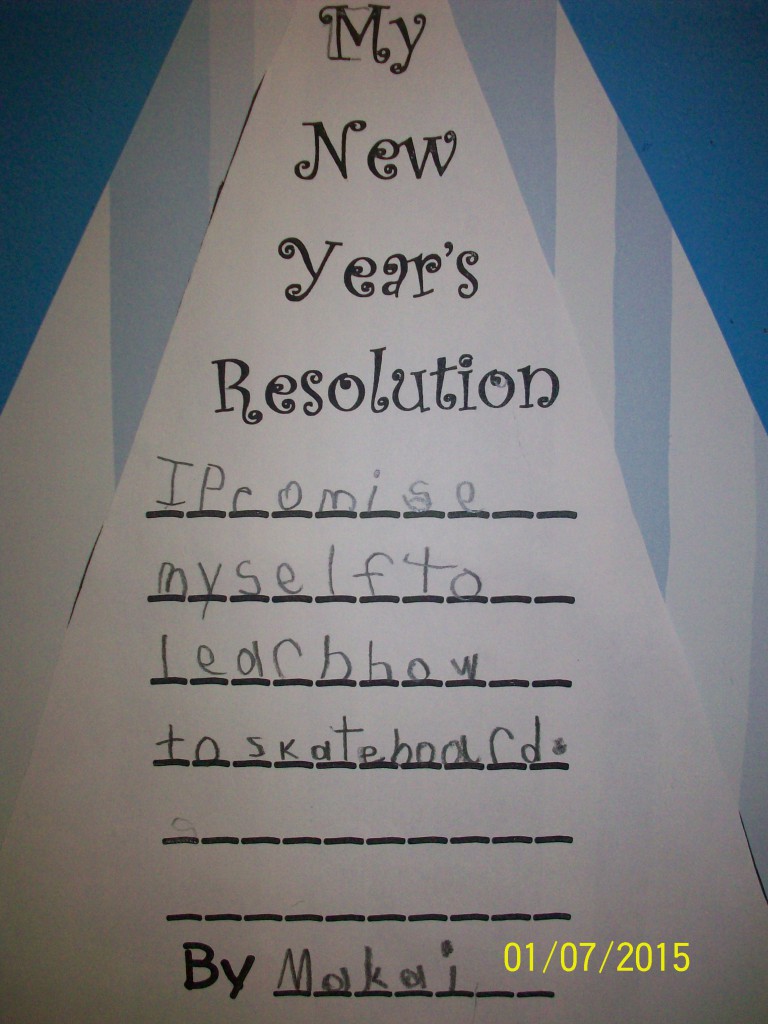 My
New
Year's
Resolution
I Promise
myself to
learn how
to skateboard.
By Makai
01/07/2015